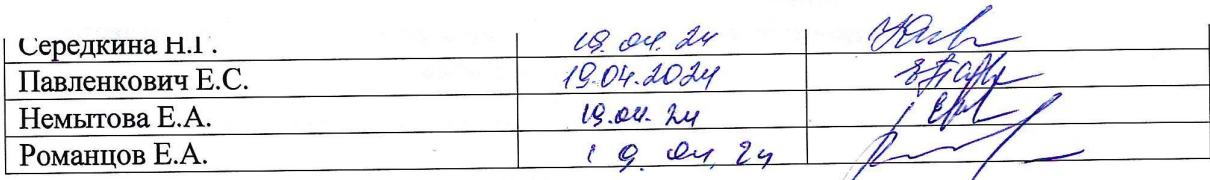 Середкина Н.Г. 19.04.24
Павленкович Е.С. 19.04.2024
Немытова Е.А. 19.04.24
Романцов Е.А. 19.04.24